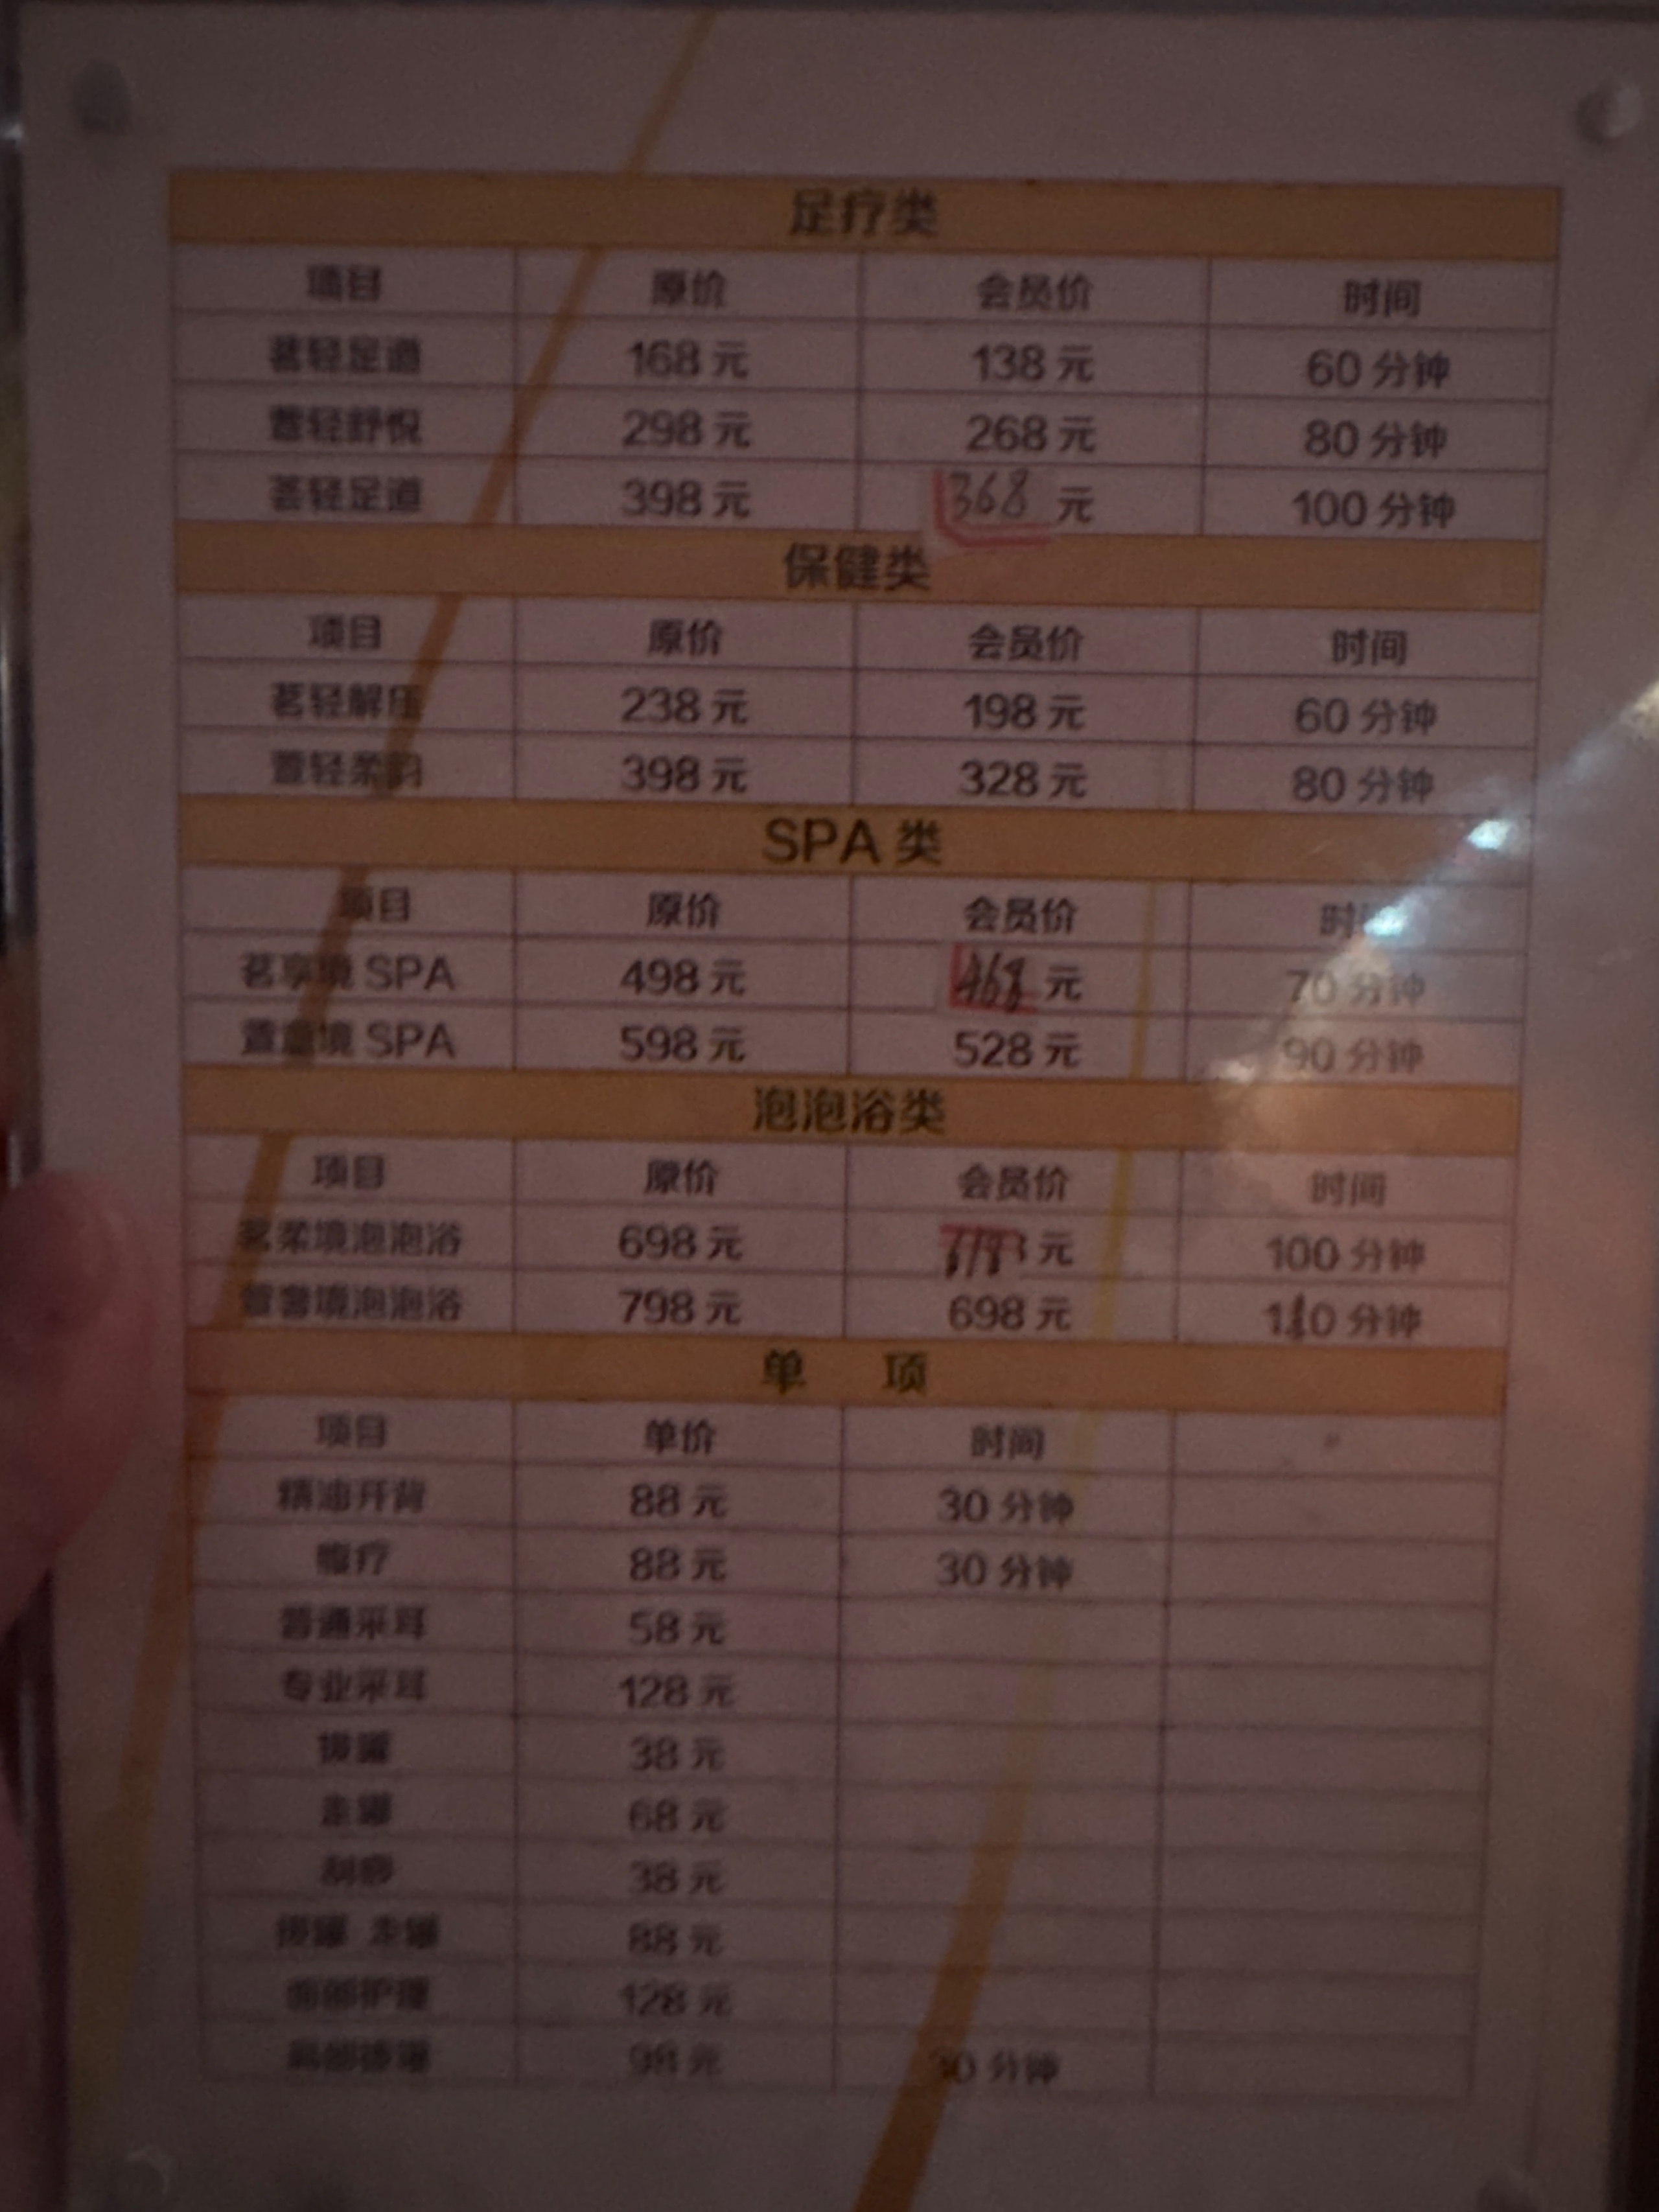 足疗类
项目 原价 会员价 时间
茗轻足道 168元 138元 60分钟
萱轻舒悦 298元 268元 80分钟
荟轻足道 398元 368元 100分钟
保健类
项目 原价 会员价 时间
茗轻解压 238元 198元 60分钟
萱轻柔韵 398元 328元 80分钟
SPA类
项目 原价 会员价 时间
茗享境SPA 498元 468元 70分钟
境SPA 598元 528元 90分钟
泡泡浴类
项目 原价 会员价 时间
茗柔境泡泡浴 698元 元 100分钟
萱奢境泡泡浴 798元 698元 110分钟
单 项
项目 单价 时间
精油开背 88元 30分钟
腹疗 88元 30分钟
普通采耳 58元
专业采耳 128元
拔罐 38元
走罐 68元
刮痧 38元
拔罐 走罐 88元
面部护理 128元
局部 98元 30分钟